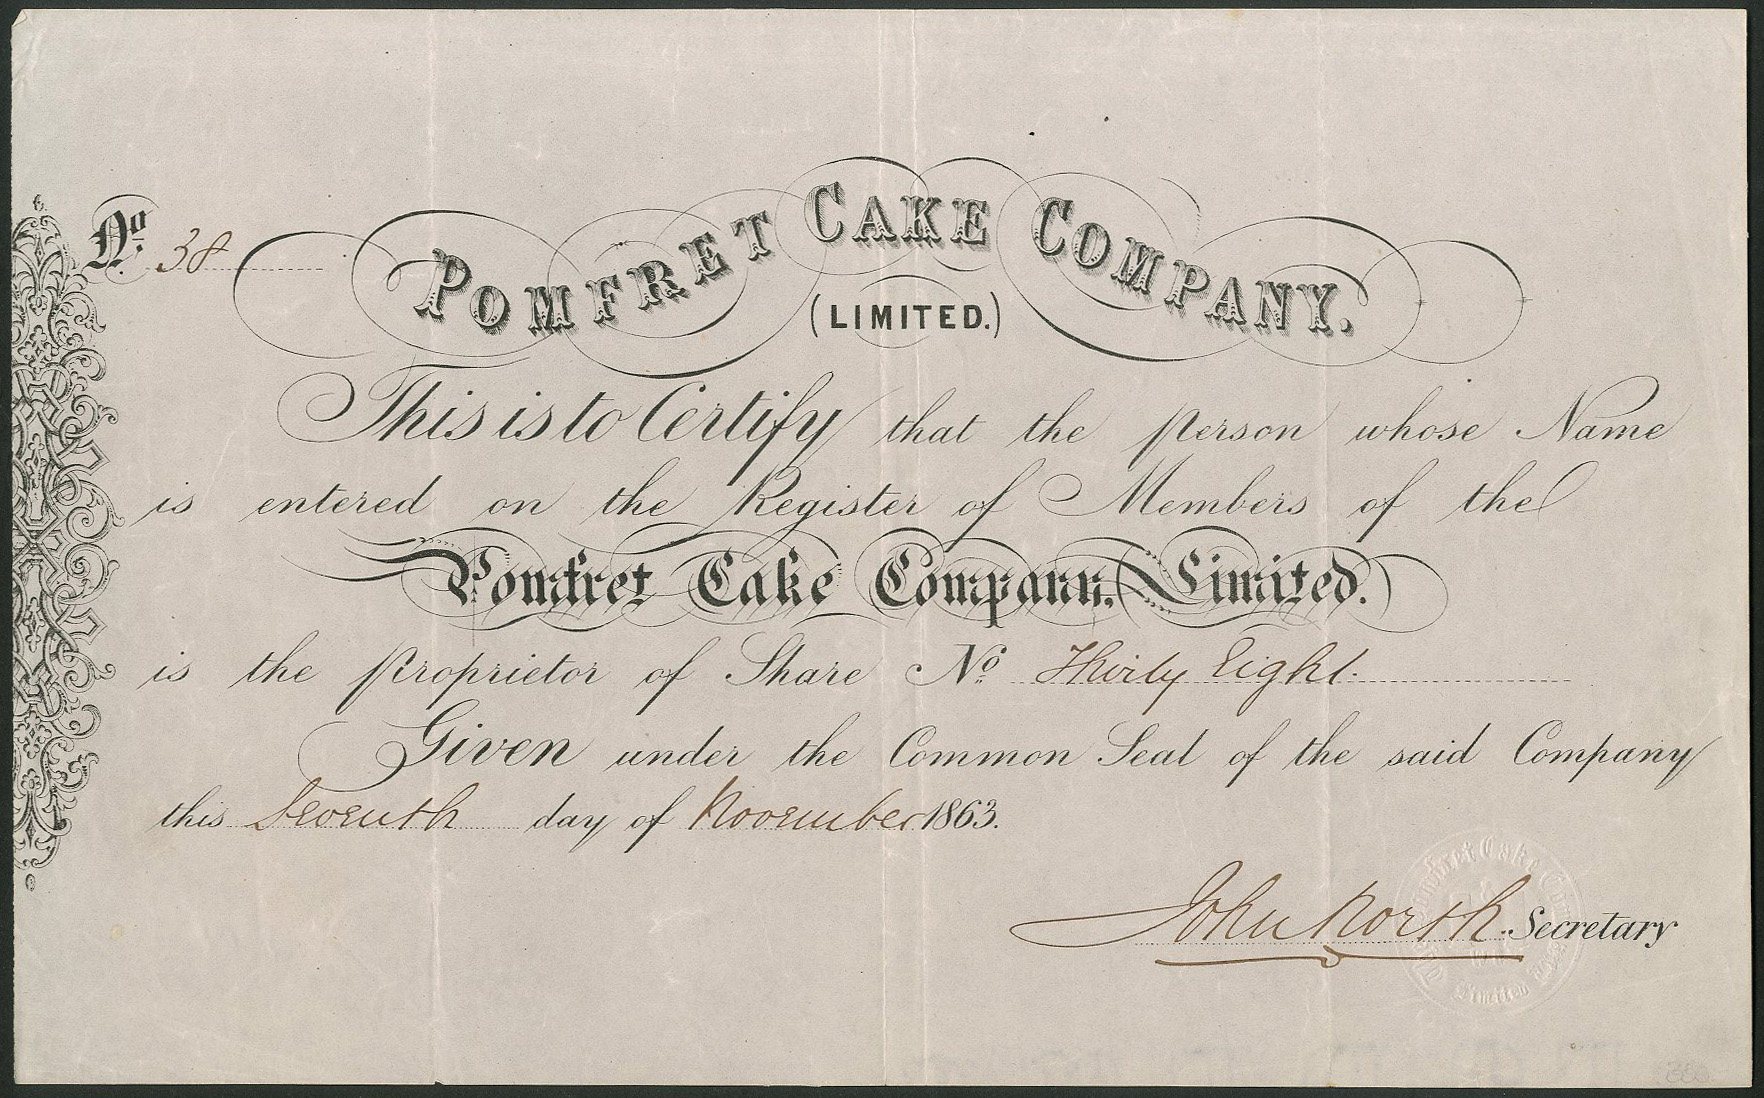 No. 38
POMFRET CAKE COMPANY.
(LIMITED.)
This is to Certify that the person whose Name
is entered on the Register of Members of the
Pomfret Cake Company, Limited.
is the proprietor of Share No. Thirty Eight.
Given under the Common Seal of the said Company
this Seventh day of November 1863.
John North. Secretary
Pomfret Cake Company Limited